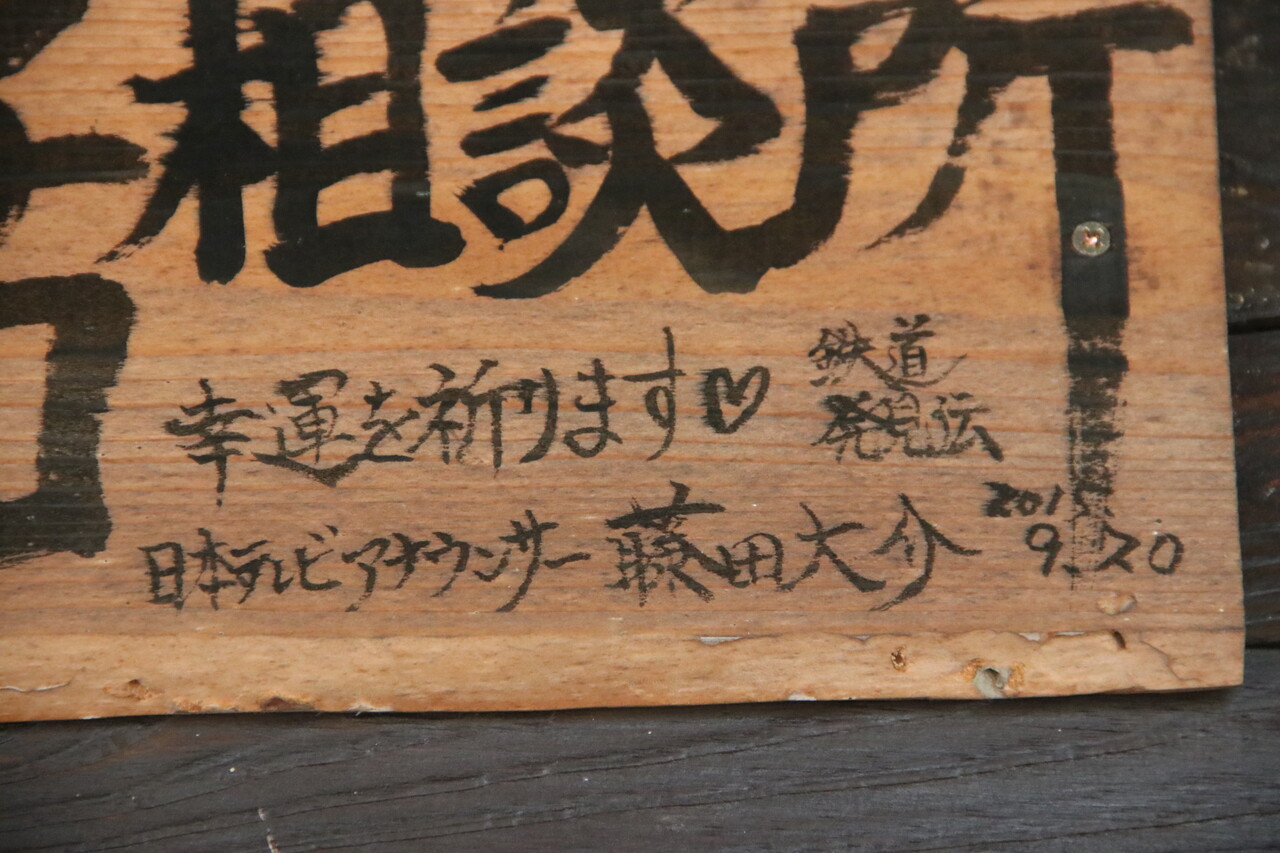 相談所
幸運を祈ります♡
鉄道
発見伝
日本テレビアナウンサー 藤田大介
9.20